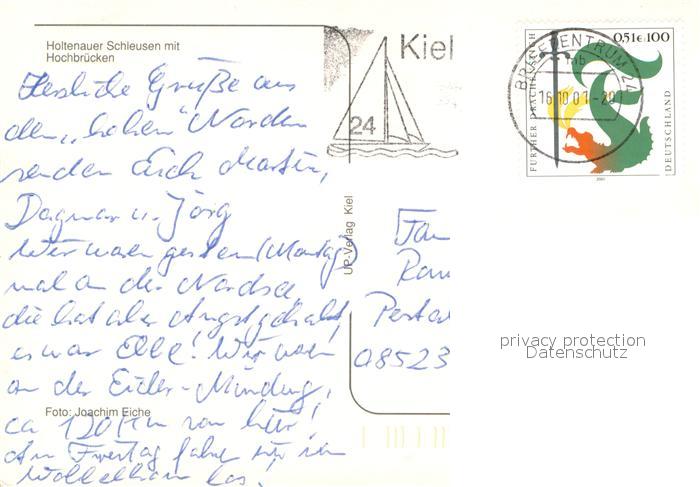 Holtenauer Schleusen mit
Hochbrücken
Herzliche Grüße aus
dem „hohen" Norden
senden Euch Martin,
Dagmar u. Jörg
Wir waren gestern (Montag)
mal an der Nordsee,
die hat aber Angst gehabt,
es war Ebbe! Wir waren
an der Eider-Mündung,
ca 120 km von hier!
Am Freitag fahren wir
Foto: Joachim Eiche
UP-Verlag Kiel
Kiel
24
BRIEFZENTRUM 24
mb
16.10.01-20
FURTHER DRACHENSTICH
0,51€ 100
DEUTSCHLAND
2001
Fam
08523
privacy protection
Datenschutz